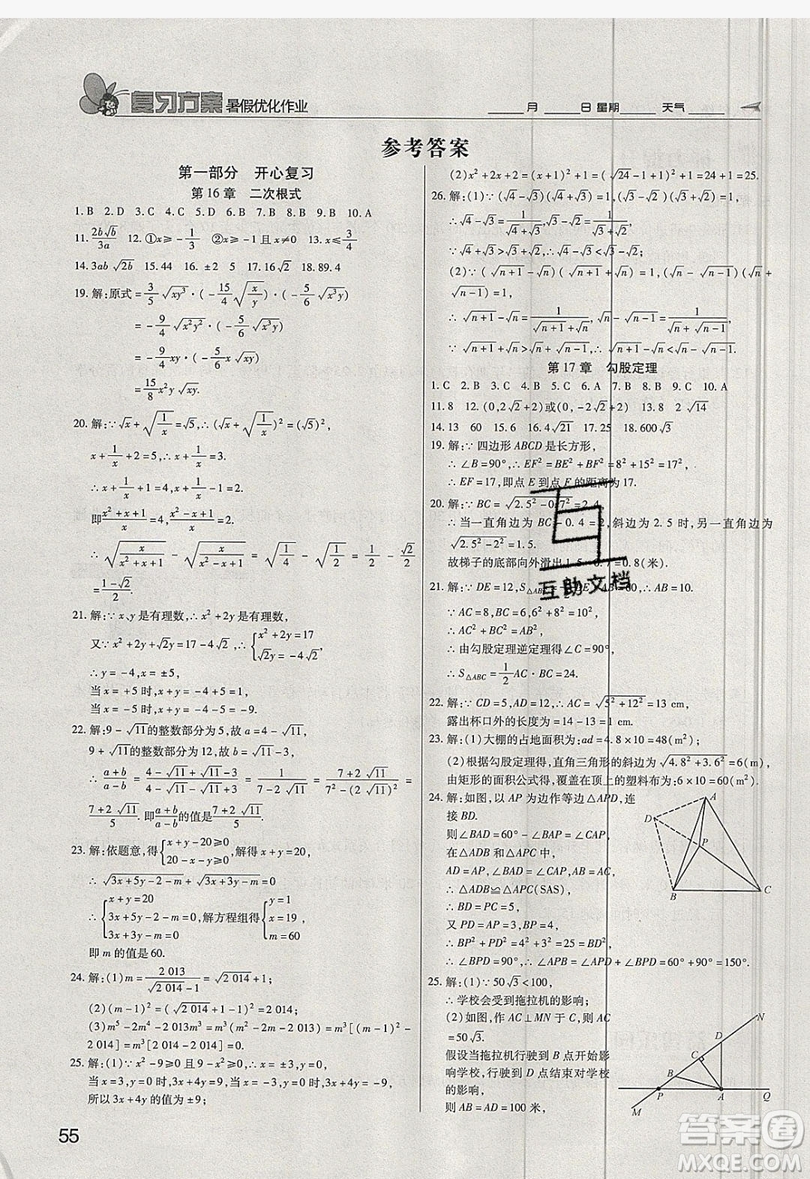 复习方案 暑假优化作业 ____月____日 星期____ 天气____
参考答案
第一部分 开心复习
第16章 二次根式
1. B 2. D 3. C 4. C 5. D 6. B 7. B 8. B 9. B 10. A
11. 2b√b/3a 12. ①x≥-1/3 ②x≥-1且x≠0 13. x≤3/4
14. 3ab√2b 15. 44 16. ±2 5 17. 2√2 18. 89.4
19. 解:原式=3/5√xy³·(-15/4√(x/y))·(-5/6√x³y)
=-9/4√x²y²·(-5/6√x³y)
=-9/4xy·(-5/6x√xy)
=15/8x²y√xy.
20. 解:∵√x+√(1/x)=√5,∴(√x+√(1/x))²=5,
x+1/x+2=5,∴x+1/x=3.
∴x+1/x+1=4,x+1/x-1=2.
即(x²+x+1)/x=4,(x²-x+1)/x=2.
∴√(x/(x²+x+1))-√(x/(x²-x+1))=√(1/4)-√(1/2)=1/2-√2/2=
(1-√2)/2.
21. 解:∵x、y是有理数,∴x²+2y是有理数.
又∵x²+2y+√2y=17-4√2,∴{x²+2y=17 y=-4
∴y=-4,x=±5,
当x=+5时,x+y=-4+5=1;
当x=-5时,x+y=-4-5=-9.
22. 解:9-√11的整数部分为5,故a=4-√11,
9+√11的整数部分为12,故b=√11-3,
∴(a+b)/(a-b)=(4-√11+√11-3)/(4-√11-√11+3)=1/(7-2√11)=(7+2√11)/5=
(7+2√11)/5. 即(a+b)/(a-b)的值是(7+2√11)/5.
23. 解:依题意,得{x+y-20≥0 20-x-y≥0 解得x+y=20.
∴√3x+5y-2-m+√2x+3y-m=0.
∴{x+y=20 3x+5y-2-m=0,解方程组得{y=1 x=19, m=60
即m的值是60.
24. 解:(1)m=2 013/(√2 014-1)=√2 014+1;
(2)(m-1)²=(√2 014+1-1)²=2 014;
(3)m⁵-2m⁴-2013m³=m³(m²-2m+1-2014)=m³[(m-1)²-
2 014]=m³(2 014-2 014)=0.
25. 解:(1)∵x²-9≥0 9-x²≥0,∴x=±3,y=4,
当x=3时,3x+4y=25,当x=-3时,3x+4y=7,
所以3x+4y的值为±9;
(2)x²+2x+2=(x+1)²+1=(√24-1+1)²+1=24+1=25.
26. 解:(1)∵(√4-√3)(√4+√3)=1,(√3-√2)(√3+√2)=1,
∴√4-√3=1/(√4+√3),√3-√2=1/(√3+√2),
∵√4+√3>√3+√2,∴√4-√3<√3-√2.
(2)∵(√n+1-√n)(√n+1+√n)=1,(√n-√n-1)(√n+√n-1)=1,
∴√n+1-√n=1/(√n+1+√n),√n-√n-1=1/(√n+√n-1),
∵√n+1+√n>√n+√n-1,∴√n+1-√n<√n-√n-1.
第17章 勾股定理
1. C 2. B 3. C 4. C 5. C 6. C 7. D 8. B 9. C 10. A
11. 8 12. (0,2√2+2)或(0,2√2-2) 13. 2√14
14. 13 60 15. 6 16. 4√21 17. 25 18. 600√3
19. 解:∵四边形ABCD是长方形,
∴∠B=90°,∴EF²=BE²+BF²=8²+15²=17²,
∴EF=17,即点E到点F的距离为17.
20. 解:∵BC=√2.5²-0.7²=2.4,
∴当一直角边为BC-0.4=2,斜边为2.5时,另一直角边为
√2.5²-2²=1.5.
故梯子的底部向外滑出1.5-0.7=0.8(米).
21. 解:∵DE=12,S△ABE=1/2DE·AB=60,∴AB=10.
∵AC=8,BC=6,6²+8²=10²,
∴AC²+BC²=AB².
∴由勾股定理逆定理得∠C=90°.
∴S△ABC=1/2AC·BC=24.
22. 解:∵CD=5,AD=12,∴AC=√5²+12²=13 cm,
露出杯口外的长度为=14-13=1 cm.
23. 解:(1)大棚的占地面积为:4.8×10=48(m²);
(2)根据勾股定理得,直角三角形的斜边为√4.8²+3.6²=6(m),
由矩形的面积公式得,覆盖在顶上的塑料布为:6×10=60(m²).
24. 解:如图,以AP为边作等边△APD,连
接BD.
则∠BAD=60°-∠BAP=∠CAP,
在△ADB和△APC中,
AD=AP,∠BAD=∠CAP,AB=AC
∴△ADB≌△APC(SAS),
∴BD=PC=5,
又PD=AP=3,BP=4,
∴BP²+PD²=4²+3²=25=BD²,
∴∠BPD=90°,∴∠APB=∠APD+∠BPD=60°+90°=150°.
25. 解:(1)∵50√3<100,
∴学校会受到拖拉机的影响;
(2)如图,作AC⊥MN于点C,AC
=50√3.
假设当拖拉机行驶到B点开始影
响学校,行驶到D点结束对学校
的影响,
则AB=AD=100米,
D A P B C
N D C B P A Q M
互助文档
答案圈
MXQE.COM
55